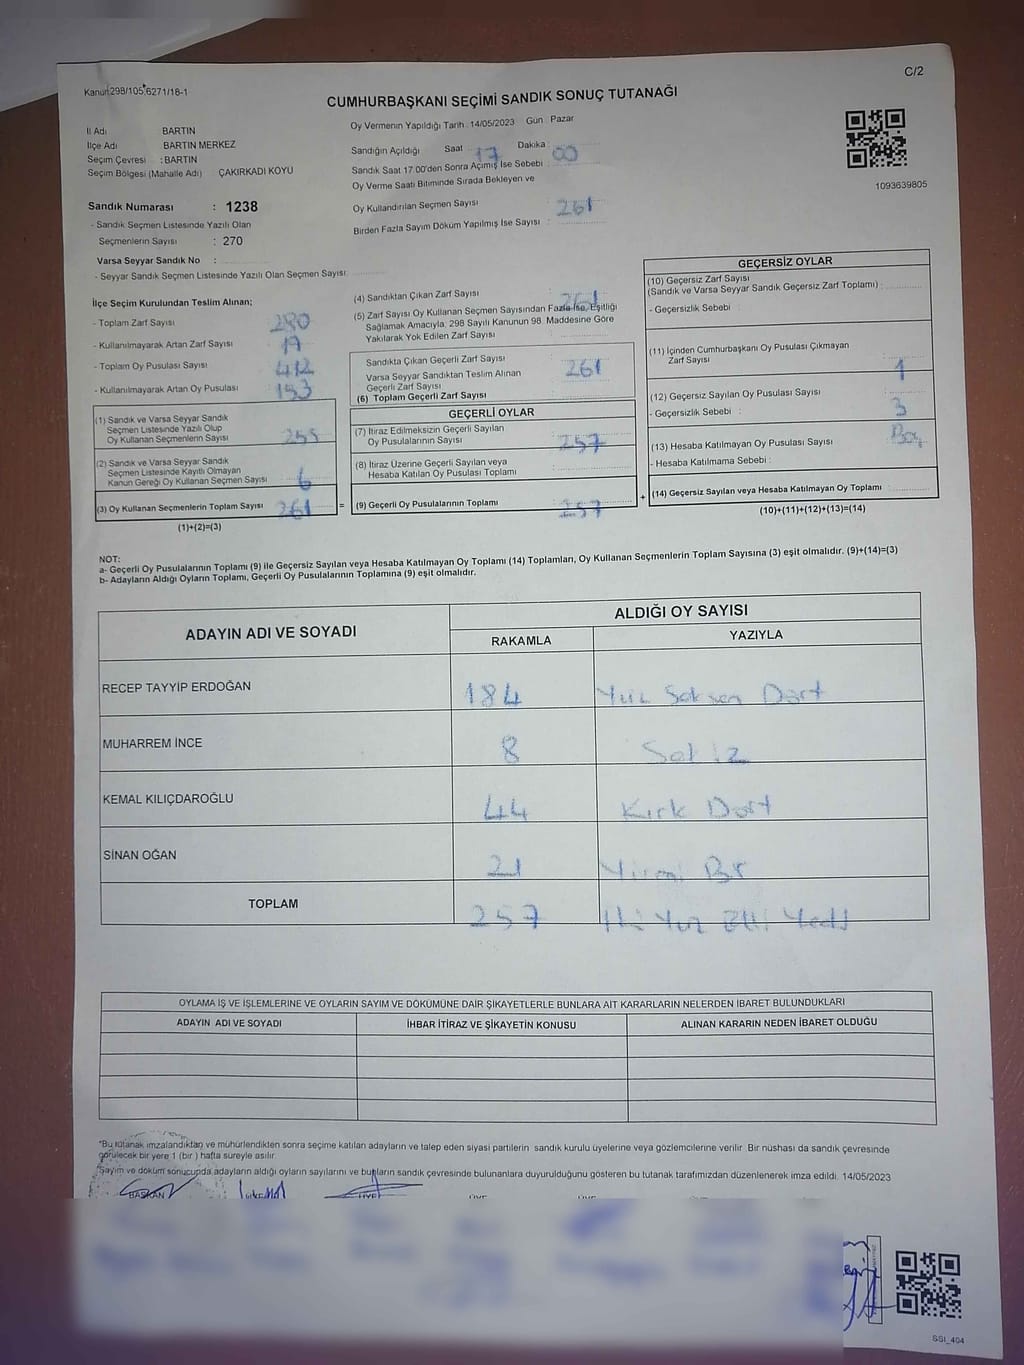 C/2
Kanun 298/105,6271/18-1
CUMHURBAŞKANI SEÇİMİ SANDIK SONUÇ TUTANAĞI
İl Adı BARTIN
İlçe Adı BARTIN MERKEZ
Seçim Çevresi : BARTIN
Seçim Bölgesi (Mahalle Adı) ÇAKIRKADI KÖYÜ
Sandık Numarası : 1238
- Sandık Seçmen Listesinde Yazılı Olan
Seçmenlerin Sayısı : 270
Varsa Seyyar Sandık No :
- Seyyar Sandık Seçmen Listesinde Yazılı Olan Seçmen Sayısı:
Oy Vermenin Yapıldığı Tarih : 14/05/2023 Gün Pazar
Sandığın Açıldığı Saat 17 Dakika : 00
Sandık Saat 17:00'den Sonra Açılmış İse Sebebi :
Oy Verme Saati Bitiminde Sırada Bekleyen ve
Oy Kullandırılan Seçmen Sayısı : 261
Birden Fazla Sayım Döküm Yapılmış İse Sayısı :
1093639805
İlçe Seçim Kurulundan Teslim Alınan;
- Toplam Zarf Sayısı 280
- Kullanılmayarak Artan Zarf Sayısı 19
- Toplam Oy Pusulası Sayısı 412
- Kullanılmayarak Artan Oy Pusulası
(1) Sandık ve Varsa Seyyar Sandık
Seçmen Listesinde Yazılı Olup
Oy Kullanan Seçmenlerin Sayısı 255
(2) Sandık ve Varsa Seyyar Sandık
Seçmen Listesinde Kayıtlı Olmayan
Kanun Gereği Oy Kullanan Seçmen Sayısı 6
(3) Oy Kullanan Seçmenlerin Toplam Sayısı 261
(1)+(2)=(3)
=
(4) Sandıktan Çıkan Zarf Sayısı : 261
(5) Zarf Sayısı Oy Kullanan Seçmen Sayısından Fazla İse, Eşitliği
Sağlamak Amacıyla, 298 Sayılı Kanunun 98. Maddesine Göre
Yakılarak Yok Edilen Zarf Sayısı :
Sandıkta Çıkan Geçerli Zarf Sayısı : 261
Varsa Seyyar Sandıktan Teslim Alınan
Geçerli Zarf Sayısı
(6) Toplam Geçerli Zarf Sayısı :
GEÇERLİ OYLAR
(7) İtiraz Edilmeksizin Geçerli Sayılan
Oy Pusulalarının Sayısı : 257
(8) İtiraz Üzerine Geçerli Sayılan veya
Hesaba Katılan Oy Pusulası Toplamı :
(9) Geçerli Oy Pusulalarının Toplamı 257
+
GEÇERSİZ OYLAR
(10) Geçersiz Zarf Sayısı
(Sandık ve Varsa Seyyar Sandık Geçersiz Zarf Toplamı) :
- Geçersizlik Sebebi :
(11) İçinden Cumhurbaşkanı Oy Pusulası Çıkmayan
Zarf Sayısı : 1
(12) Geçersiz Sayılan Oy Pusulası Sayısı : 3
- Geçersizlik Sebebi :
(13) Hesaba Katılmayan Oy Pusulası Sayısı : Boş
- Hesaba Katılmama Sebebi :
(14) Geçersiz Sayılan veya Hesaba Katılmayan Oy Toplamı
(10)+(11)+(12)+(13)=(14)
NOT:
a- Geçerli Oy Pusulalarının Toplamı (9) ile Geçersiz Sayılan veya Hesaba Katılmayan Oy Toplamı (14) Toplamları, Oy Kullanan Seçmenlerin Toplam Sayısına (3) eşit olmalıdır. (9)+(14)=(3)
b- Adayların Aldığı Oyların Toplamı, Geçerli Oy Pusulalarının Toplamına (9) eşit olmalıdır.
ADAYIN ADI VE SOYADI ALDIĞI OY SAYISI
RAKAMLA YAZIYLA
RECEP TAYYİP ERDOĞAN 184 Yüz Seksen Dört
MUHARREM İNCE 8 Sekiz
KEMAL KILIÇDAROĞLU 44 Kırk Dört
SİNAN OĞAN 21 Yirmi Bir
TOPLAM 257 İki Yüz Elli Yedi
OYLAMA İŞ VE İŞLEMLERİNE VE OYLARIN SAYIM VE DÖKÜMÜNE DAİR ŞİKAYETLERLE BUNLARA AİT KARARLARIN NELERDEN İBARET BULUNDUKLARI
ADAYIN ADI VE SOYADI İHBAR İTİRAZ VE ŞİKAYETİN KONUSU ALINAN KARARIN NEDEN İBARET OLDUĞU
*Bu tutanak imzalandıktan ve mühürlendikten sonra seçime katılan adayların ve talep eden siyasi partilerin sandık kurulu üyelerine veya gözlemcilerine verilir. Bir nüshası da sandık çevresinde
görülecek bir yere 1 (bir) hafta süreyle asılır.
*Sayım ve döküm sonucunda adayların aldığı oyların sayılarını ve bunların sandık çevresinde bulunanlara duyurulduğunu gösteren bu tutanak tarafımızdan düzenlenerek imza edildi. 14/05/2023
BAŞKAN ÜYE ÜYE ÜYE
SSI_404